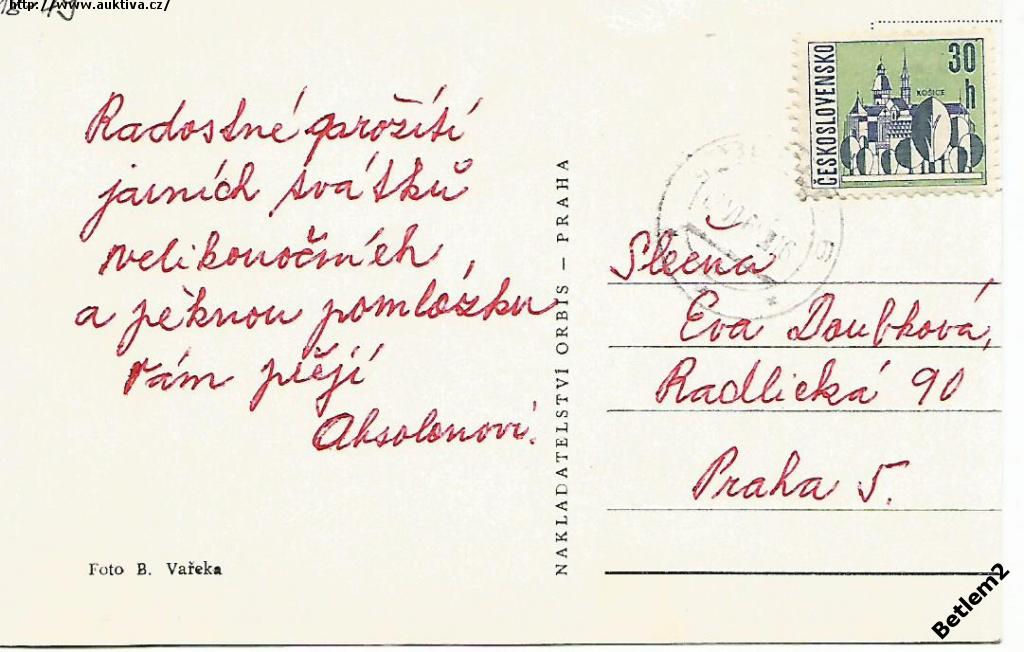 http://www.auktiva.cz/
Radostné prožití
jarních svátků
velikonočních,
a pěknou pomlázku
Vám přejí
Absolonovi.
Foto B. Vařeka
NAKLADATELSTVÍ ORBIS — PRAHA
ČESKOSLOVENSKO
30 h
KOŠICE
Slečna
Eva Doubková,
Radlická 90
Praha 5.
Betlem2